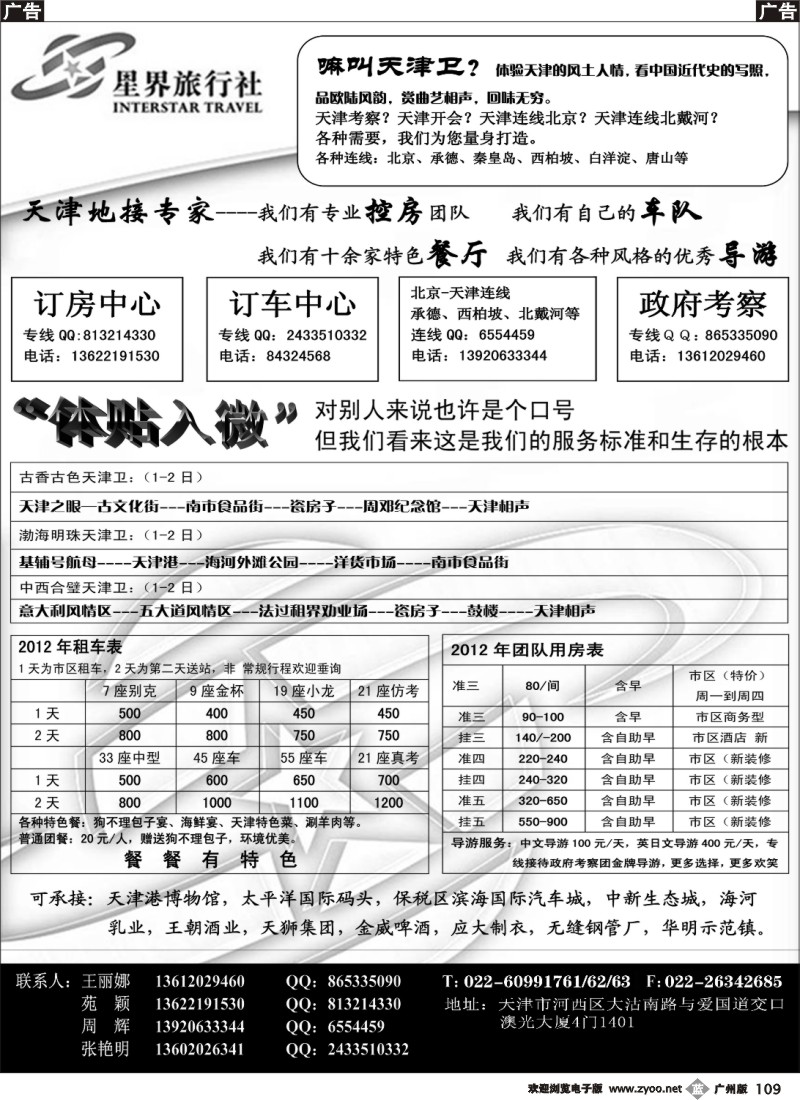 广告
广告
星界旅行社
INTERSTAR TRAVEL
嘛叫天津卫？ 体验天津的风土人情，看中国近代史的写照，
品欧陆风韵，赏曲艺相声，回味无穷。
天津考察？天津开会？天津连线北京？天津连线北戴河？
各种需要，我们为您量身打造。
各种连线：北京、承德、秦皇岛、西柏坡、白洋淀、唐山等
天津地接专家----我们有专业控房团队 我们有自己的车队
我们有十余家特色餐厅 我们有各种风格的优秀导游
订房中心
专线QQ:813214330
电话：13622191530
订车中心
专线QQ：2433510332
电话：84324568
北京-天津连线
承德、西柏坡、北戴河等
连线QQ：6554459
电话：13920633344
政府考察
专线QQ：865335090
电话：13612029460
“体贴入微”
对别人来说也许是个口号
但我们看来这是我们的服务标准和生存的根本
古香古色天津卫：（1-2 日）
天津之眼—古文化街---南市食品街---瓷房子---周邓纪念馆---天津相声
渤海明珠天津卫：（1-2 日）
基辅号航母----天津港---海河外滩公园----洋货市场----南市食品街
中西合璧天津卫：（1-2 日）
意大利风情区---五大道风情区---法过租界劝业场---瓷房子---鼓楼----天津相声
2012 年租车表
1 天为市区租车，2 天为第二天送站，非 常规行程欢迎垂询
7 座别克 9 座金杯 19 座小龙 21 座仿考
1 天 500 400 450 450
2 天 800 800 750 750
33 座中型 45 座车 55 座车 21 座真考
1 天 500 600 650 700
2 天 800 1000 1100 1200
各种特色餐：狗不理包子宴、海鲜宴、天津特色菜、涮羊肉等。
普通团餐：20 元/人，赠送狗不理包子，环境优美。
餐 餐 有 特 色
2012 年团队用房表
准三 80/间 含早 市区（特价）
周一到周四
准三 90-100 含早 市区商务型
挂三 140/-200 含自助早 市区酒店 新
准四 220-240 含自助早 市区（新装修
挂四 240-320 含自助早 市区（新装修
准五 320-650 含自助早 市区（新装修
挂五 550-900 含自助早 市区（新装修
导游服务：中文导游 100 元/天，英日文导游 400 元/天，专
线接待政府考察团金牌导游，更多选择，更多欢笑
可承接：天津港博物馆，太平洋国际码头，保税区滨海国际汽车城，中新生态城，海河
乳业，王朝酒业，天狮集团，金威啤酒，应大制衣，无缝钢管厂，华明示范镇。
联系人：王丽娜 13612029460 QQ：865335090
苑 颖 13622191530 QQ：813214330
周 辉 13920633344 QQ：6554459
张艳明 13602026341 QQ：2433510332
T：022-60991761/62/63 F：022-26342685
地址：天津市河西区大沽南路与爱国道交口
澳光大厦4门1401
欢迎浏览电子版 www.zyoo.net 蓝 广州版 109